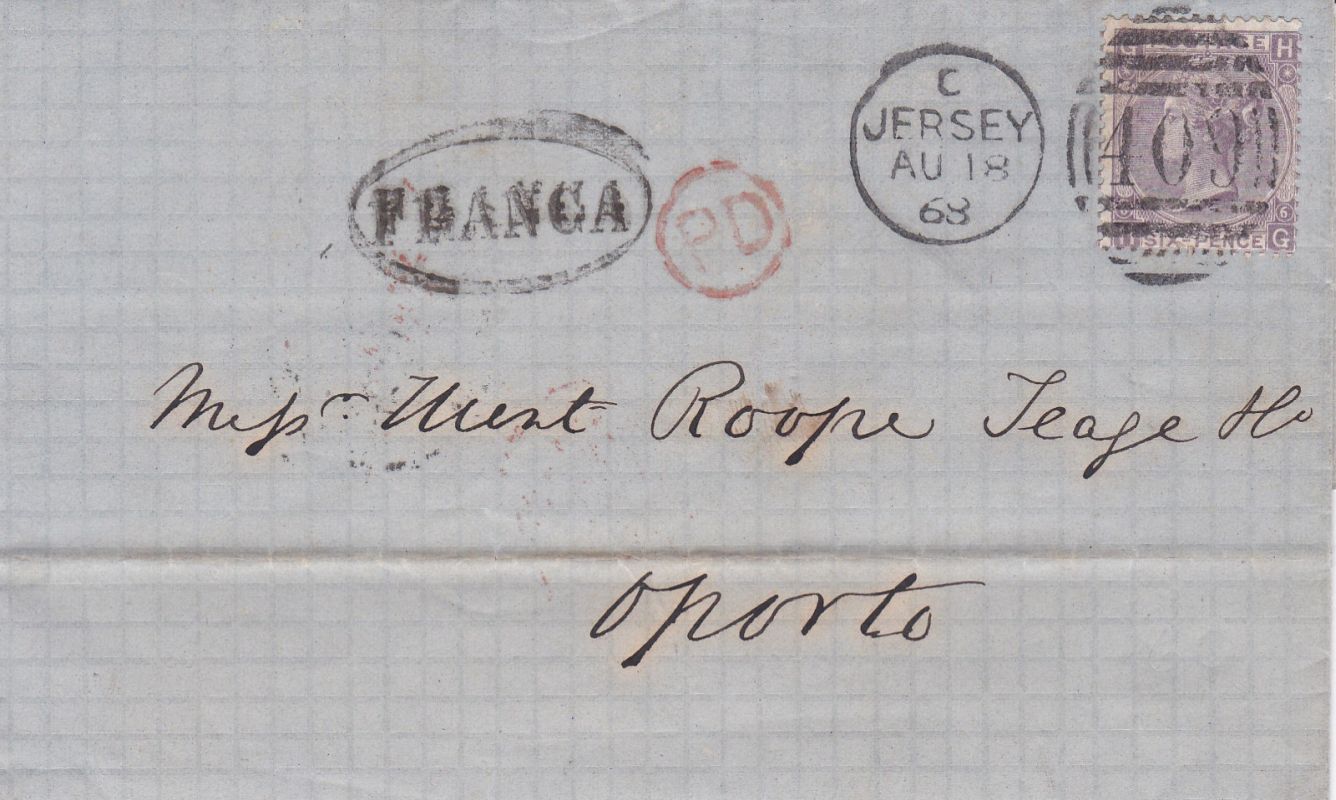 C
JERSEY
AU 18
68
409
G POSTAGE H
6
SIX-PENCE G
FRANCA
PD
Messrs Hunt Roope Teage &Co
Oporto